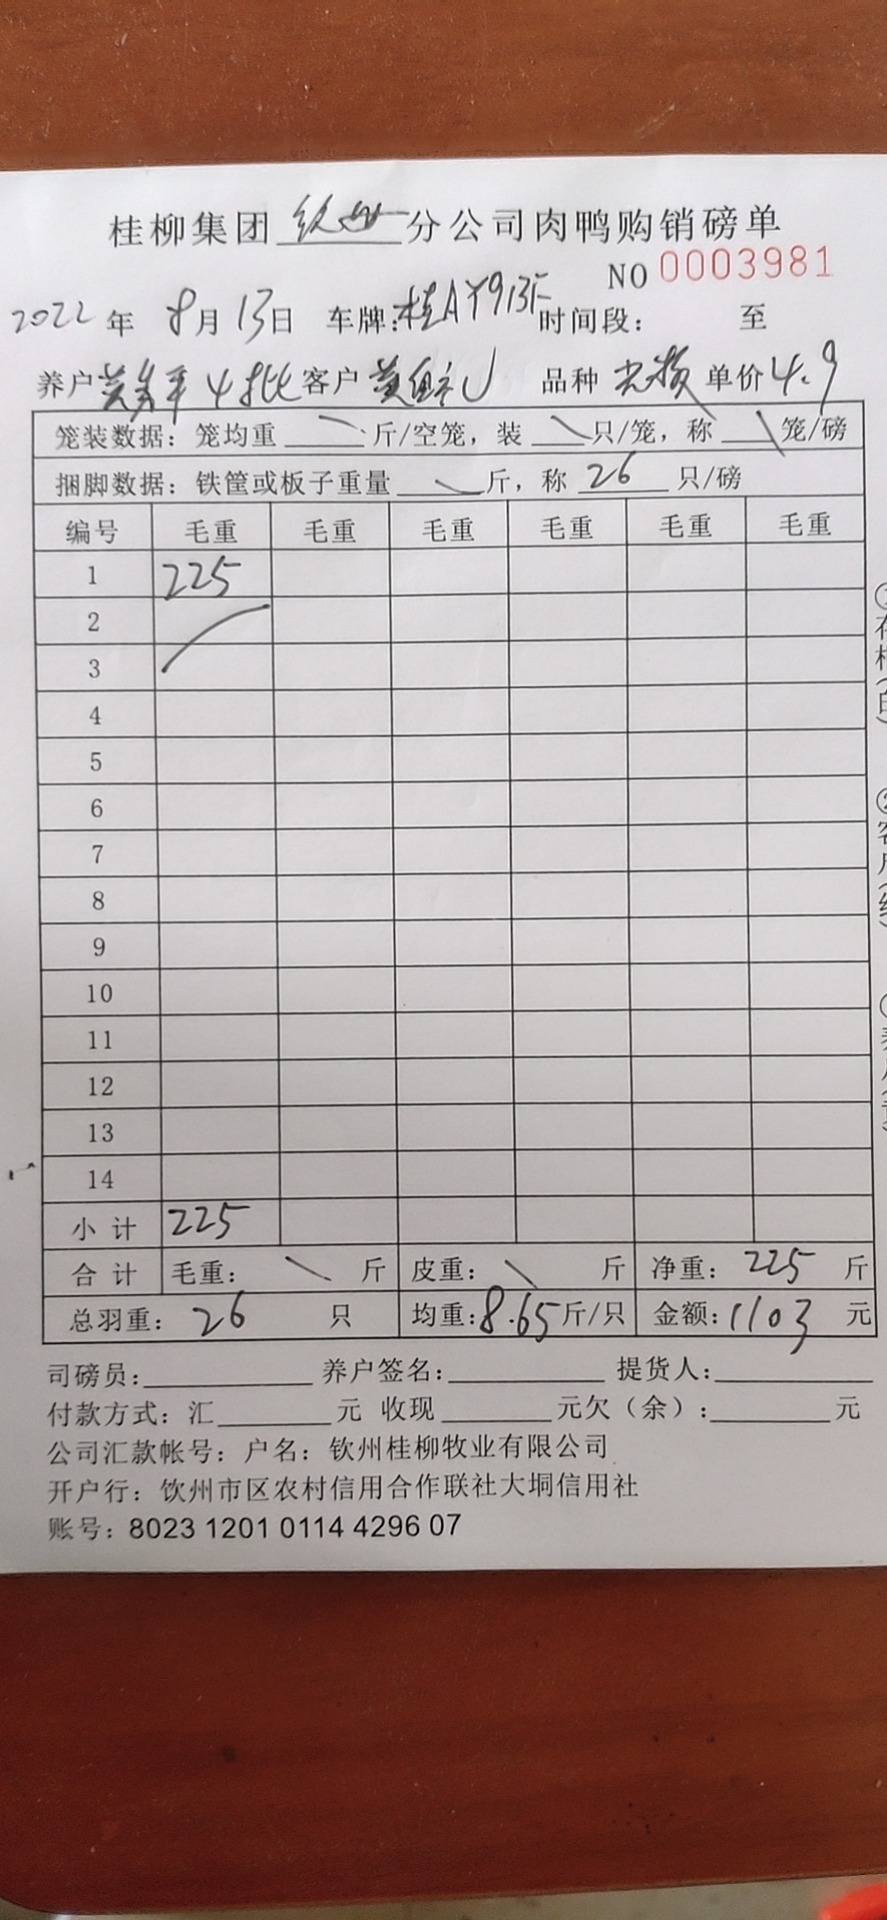 桂柳集团 钦州 分公司肉鸭购销磅单
NO 0003981
2022 年 8月13日 车牌:桂AY913F 时间段: 至
养户 4批 客户 黄 品种 单价 4.9
笼装数据: 笼均重 斤/空笼, 装 只/笼, 称 笼/磅
捆脚数据: 铁筐或板子重量 斤, 称 26 只/磅
编号 毛重 毛重 毛重 毛重 毛重 毛重
1 225
2
3
4
5
6
7
8
9
10
11
12
13
14
小 计 225
合 计 毛重: 斤 皮重: 斤 净重: 225 斤
总羽重: 26 只 均重:8.65斤/只 金额:1103 元
司磅员: 养户签名: 提货人:
付款方式: 汇 元 收现 元欠(余): 元
公司汇款帐号: 户名: 钦州桂柳牧业有限公司
开户行: 钦州市区农村信用合作联社大垌信用社
账号: 8023 1201 0114 4296 07